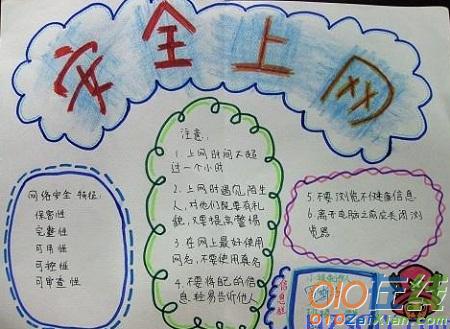 安全上网
网络安全特征:
保密性
完整性
可用性
可控性
可审查性
注意:
1.上网时间不超
过一个小时
2.上网时遇见陌生
人,对他们既要有礼
貌,又要提高警惕
3.在网上最好使用
网名,不要使用真名
4.不要将自己的信
息轻易告诉他人
5.不要浏览不健康信息
6.离开电脑之前应关闭浏
览器
信息栏
010在线
010ZaiXian.com